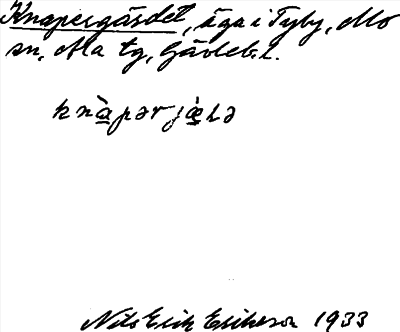 Knapergärdet, äga i Tyby, Mo
sn, Ala tg, Gävleb. l.
knàpərjæ̀lə
Nils Erik Erikson 1933